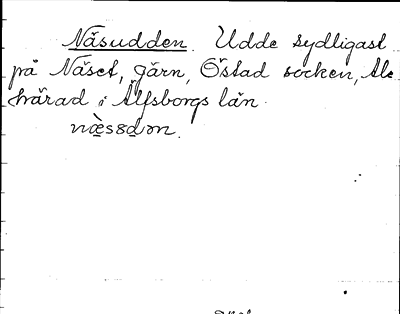 Näsudden. Udde sydligast
på Näset, Gärn, Östad socken, Ale
härad i Älfsborgs län.
næ̀s8dən.